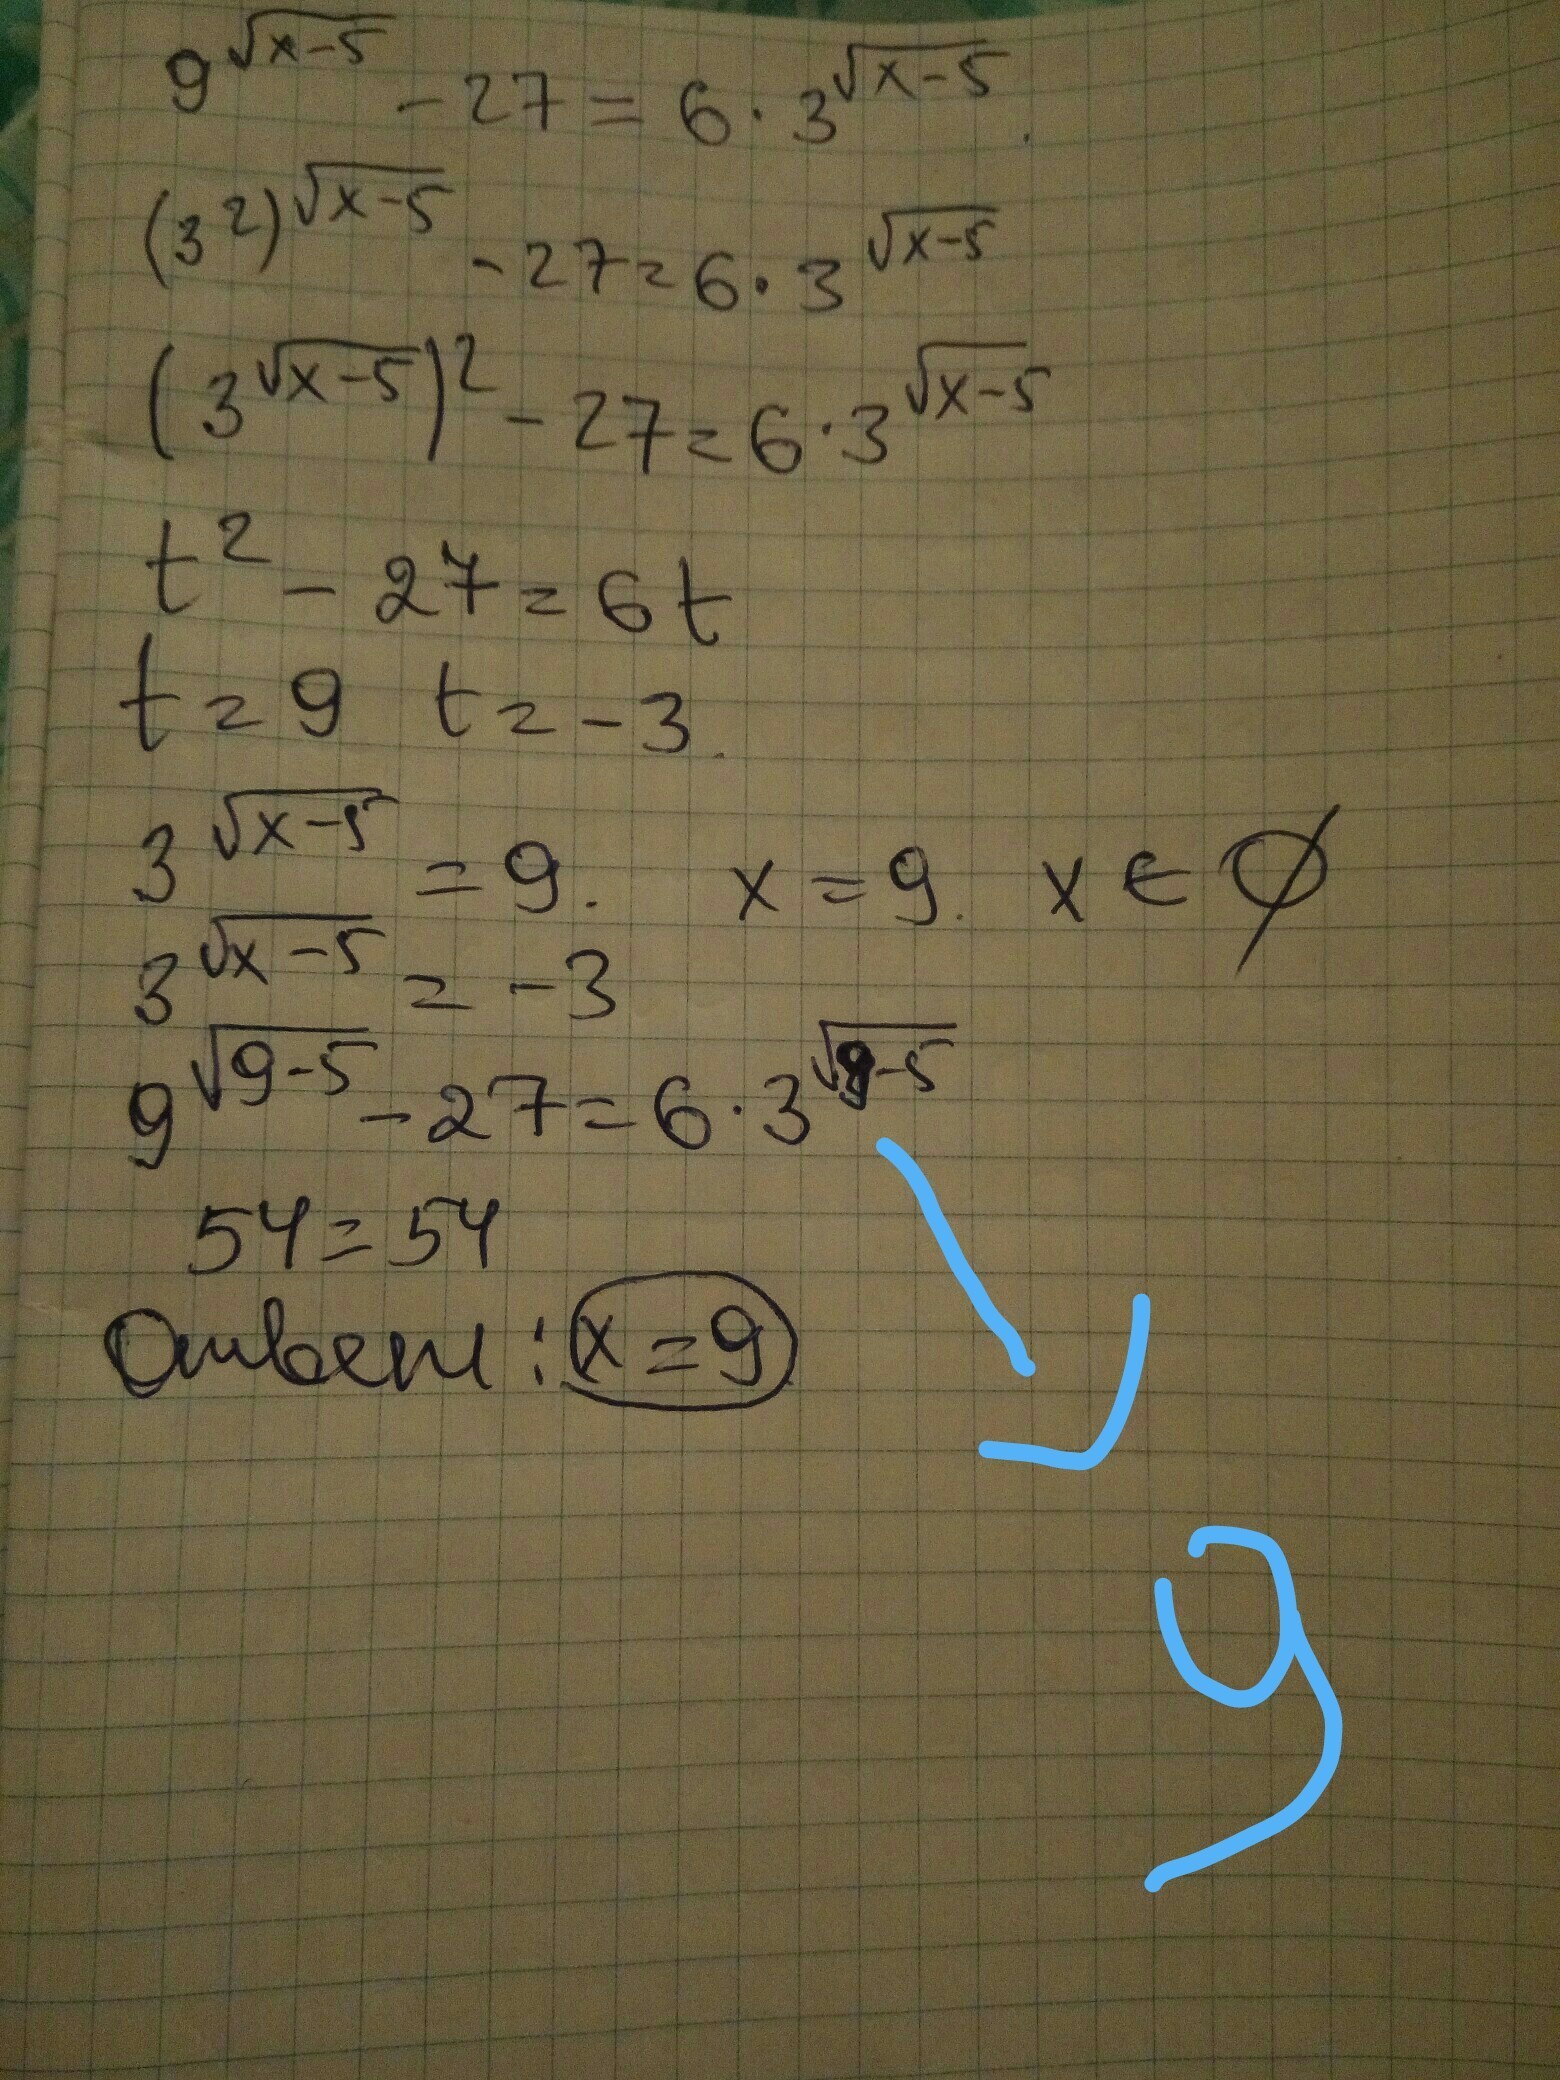 9^√(x-5) - 27 = 6 · 3^√(x-5).
(3²)^√(x-5) - 27 = 6 · 3^√(x-5)
(3^√(x-5))² - 27 = 6 · 3^√(x-5)
t² - 27 = 6t
t = 9 t = -3.
3^√(x-5) = 9. x = 9. x ∈ ∅
3^√(x-5) = -3
9^√(9-5) - 27 = 6 · 3^√(9-5)
54 = 54
Ответ: x = 9
9